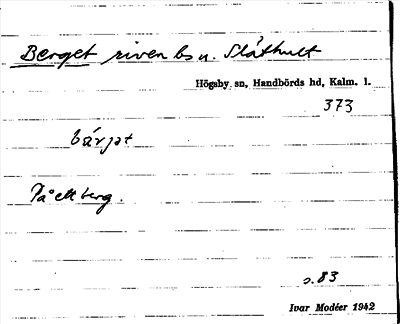 Berget riven bs u. Slåthult
Högsby sn, Handbörds hd, Kalm. l.
373
bárjət
På ett berg.
s. 83
Ivar Modéer 1942